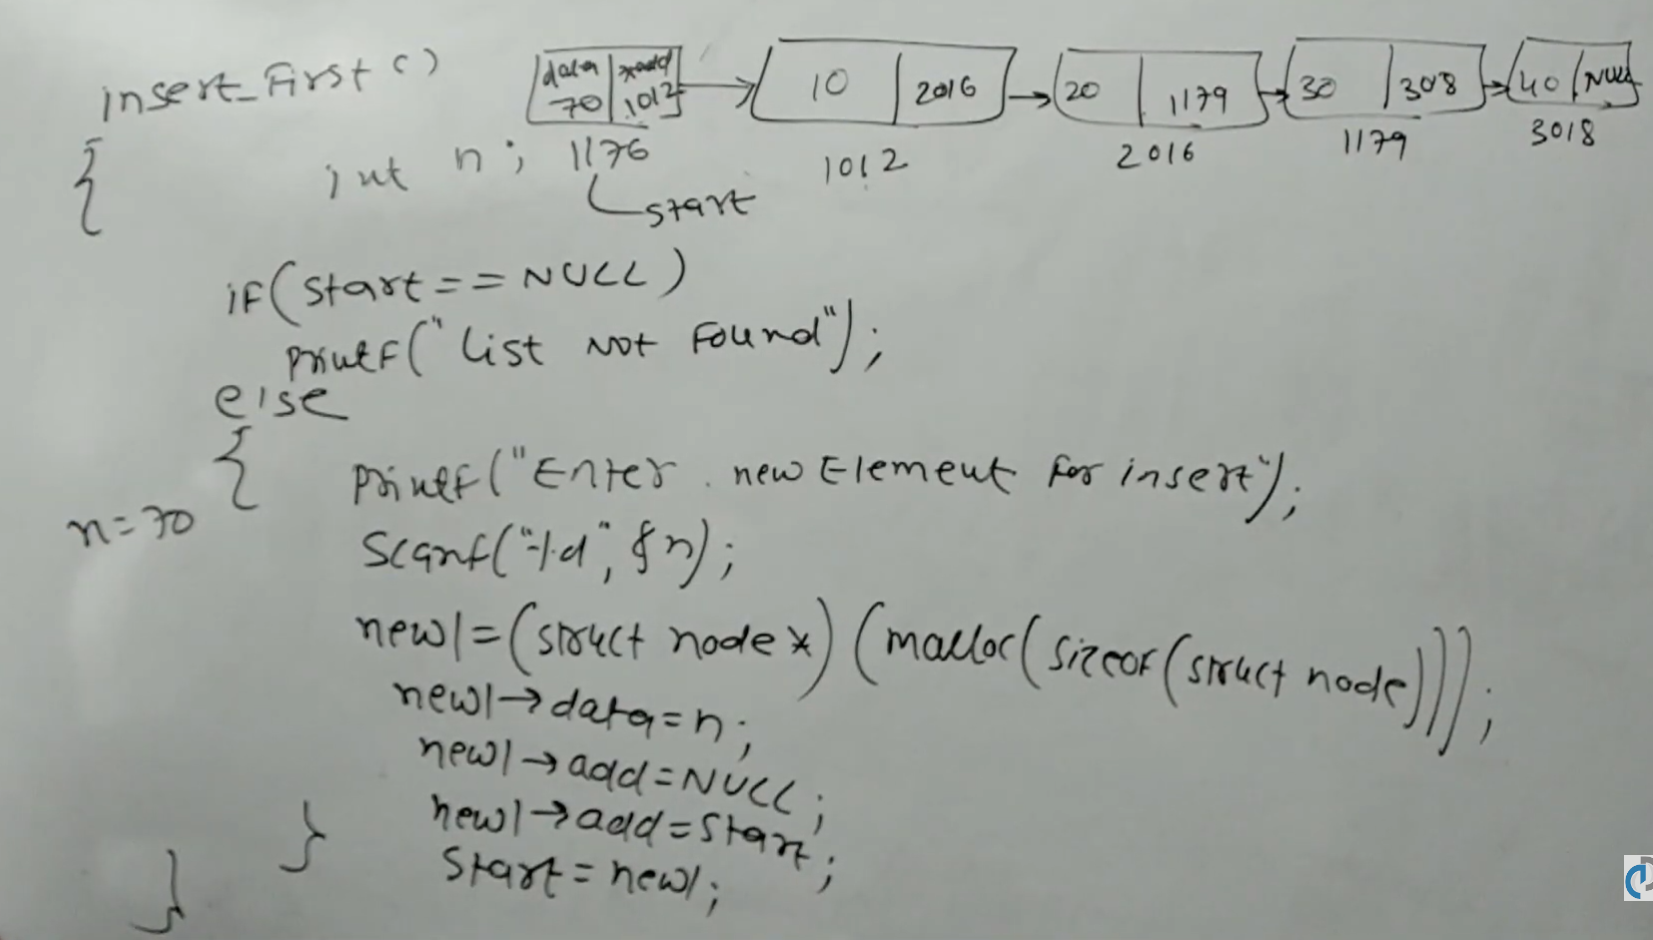 insert_First()
data *add
70 1012
10 2016
20 1179
30 3018
40 NULL
1176
1012
2016
1179
3018
start
{
int n;
if(start==NULL)
printf("List Not Found");
else
{
n=70
printf("Enter new Element for insert");
scanf("%d",&n);
new1=(struct node*)(malloc(sizeof(struct node)));
new1→data=n;
new1→add=NULL;
new1→add=start;
start=new1;
}
}